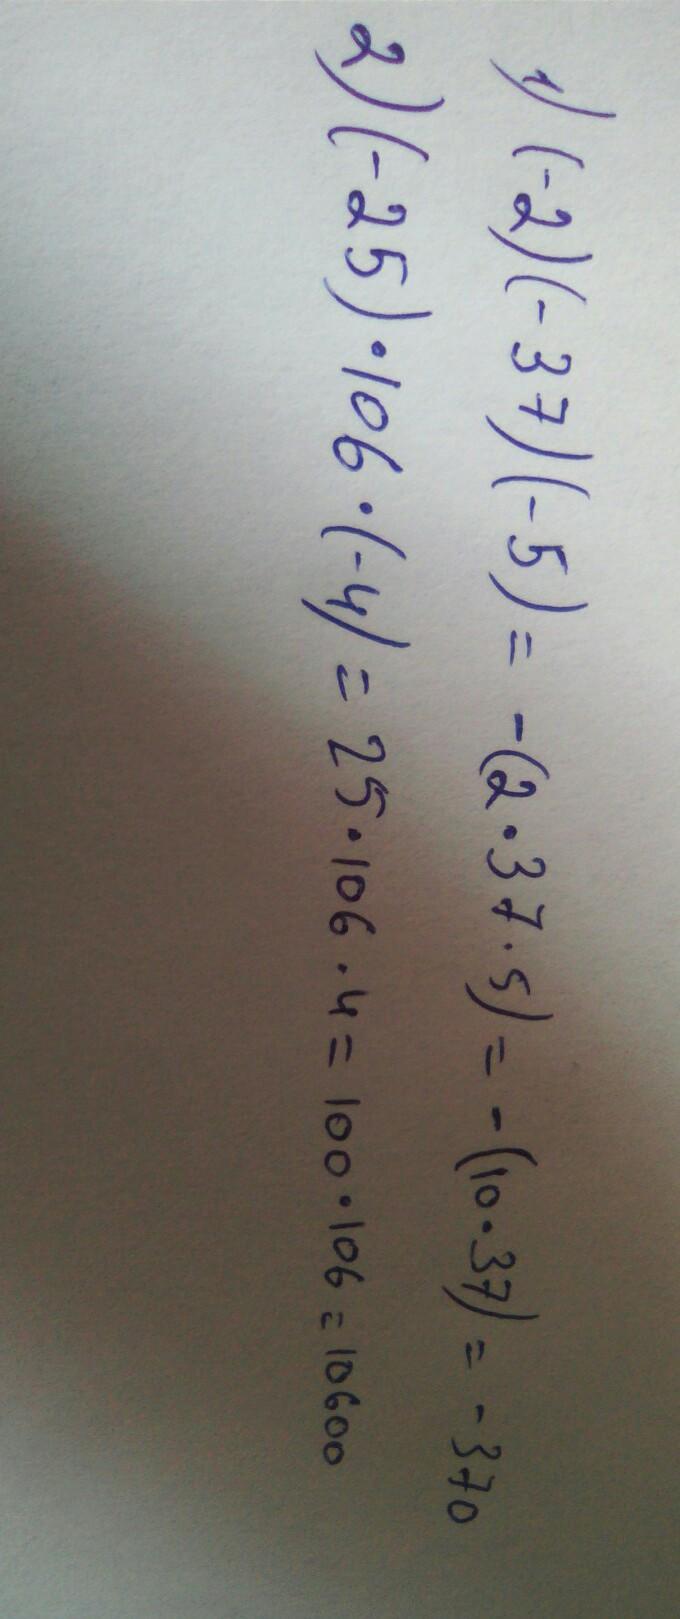 1) (-2)(-37)(-5) = -(2·37·5) = -(10·37) = -370
2) (-25)·106·(-4) = 25·106·4 = 100·106 = 10600